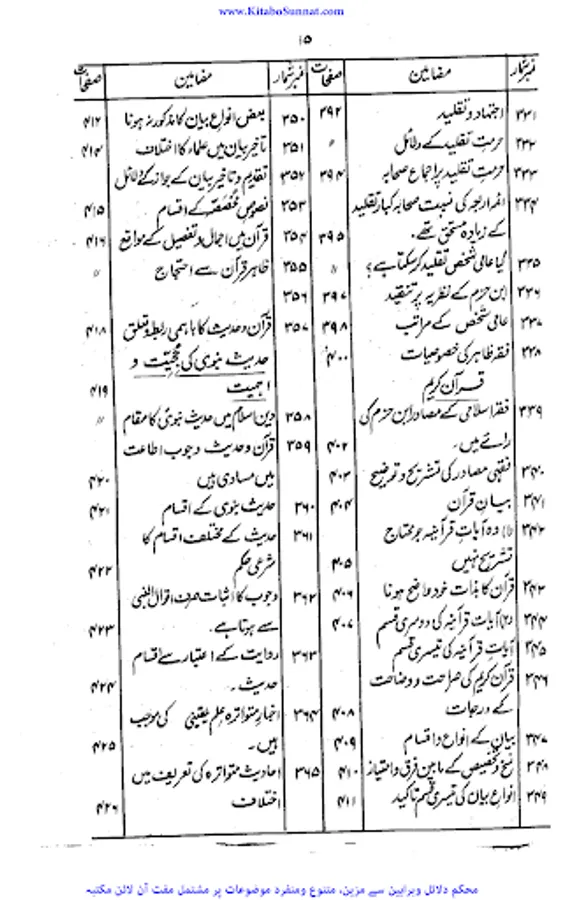 www.KitaboSunnat.com
۱۵
نمبر شمار مضامین صفحات
۳۳۱ اجتہاد و تقلید ۳۹۲
۳۳۲ حرمت تقلید کے دلائل 〃
۳۳۳ حرمت تقلید پر اجماع صحابہ ۳۹۴
۳۳۴ ائمہ اربعہ کی نسبت صحابہ کبار تقلید
کے زیادہ مستحق تھے۔ ۳۹۵
۳۳۵ کیا عامی شخص تقلید کر سکتا ہے؟ 〃
۳۳۶ ابن حزم کے نظریہ پر تنقید ۳۹۷
۳۳۷ عامی شخص کے مراتب ۳۹۸
۳۳۸ فقہ ظاہر کی خصوصیات ۴۰۰
قرآن کریم
۳۳۹ فقہ اسلامی کے مصادر ابن حزم کی
رائے میں۔ ۴۰۲
۳۴۰ فقہی مصادر کی تشریح و توضیح ۴۰۳
۳۴۱ بیان قرآن ۴۰۴
۳۴۲ (۱) وہ آیات قرآنیہ جو محتاج
تشریح نہیں ۴۰۵
۳۴۳ قرآن کا بذات خود واضح ہونا ۴۰۶
۳۴۴ (۲) آیات قرآنیہ کی دوسری قسم ۴۰۷
۳۴۵ آیات قرآنیہ کی تیسری قسم
۳۴۶ قرآن کریم کی صراحت و وضاحت
کے درجات ۴۰۸
۳۴۷ بیان کے انواع و اقسام ۴۰۹
۳۴۸ نسخ و تخصیص کے مابین فرق و امتیاز ۴۱۰
۳۴۹ انواع بیان کی تیسری قسم تاکید ۴۱۱
نمبر شمار مضامین صفحات
۳۵۰ بعض انواع بیان کا مذکور نہ ہونا ۴۱۲
۳۵۱ تاخیر بیان میں علماء کا اختلاف ۴۱۴
۳۵۲ تقدیم و تاخیر بیان کے جواز کے دلائل
۳۵۳ نصوص مخصصہ کے اقسام ۴۱۵
۳۵۴ قرآن میں اجمال و تفصیل کے مواقع ۴۱۶
۳۵۵ ظاہر قرآن سے احتجاج 〃
۳۵۶
۳۵۷ قرآن و حدیث کا باہمی ربط و تعلق ۴۱۸
حدیث نبوی کی حجیت و
اہمیت ۴۱۹
۳۵۸ دین اسلام میں حدیث نبوی کا مقام 〃
۳۵۹ قرآن و حدیث وجوب اطاعت
میں مساوی ہیں ۴۲۰
۳۶۰ حدیث نبوی کے اقسام ۴۲۱
۳۶۱ حدیث کے مختلف اقسام کا
شرعی حکم ۴۲۲
۳۶۲ وجوب کا اثبات صرف اقوال النبی
سے ہوتا ہے۔ ۴۲۳
۳۶۳ روایت کے اعتبار سے اقسام
حدیث۔ ۴۲۴
۳۶۴ اخبار متواترہ علم یقینی کی موجب
ہیں۔ ۴۲۵
۳۶۵ احادیث متواترہ کی تعریف میں
اختلاف ۴۲۶
محکم دلائل وبراہین سے مزین، متنوع ومنفرد موضوعات پر مشتمل مفت آن لائن مکتبہ